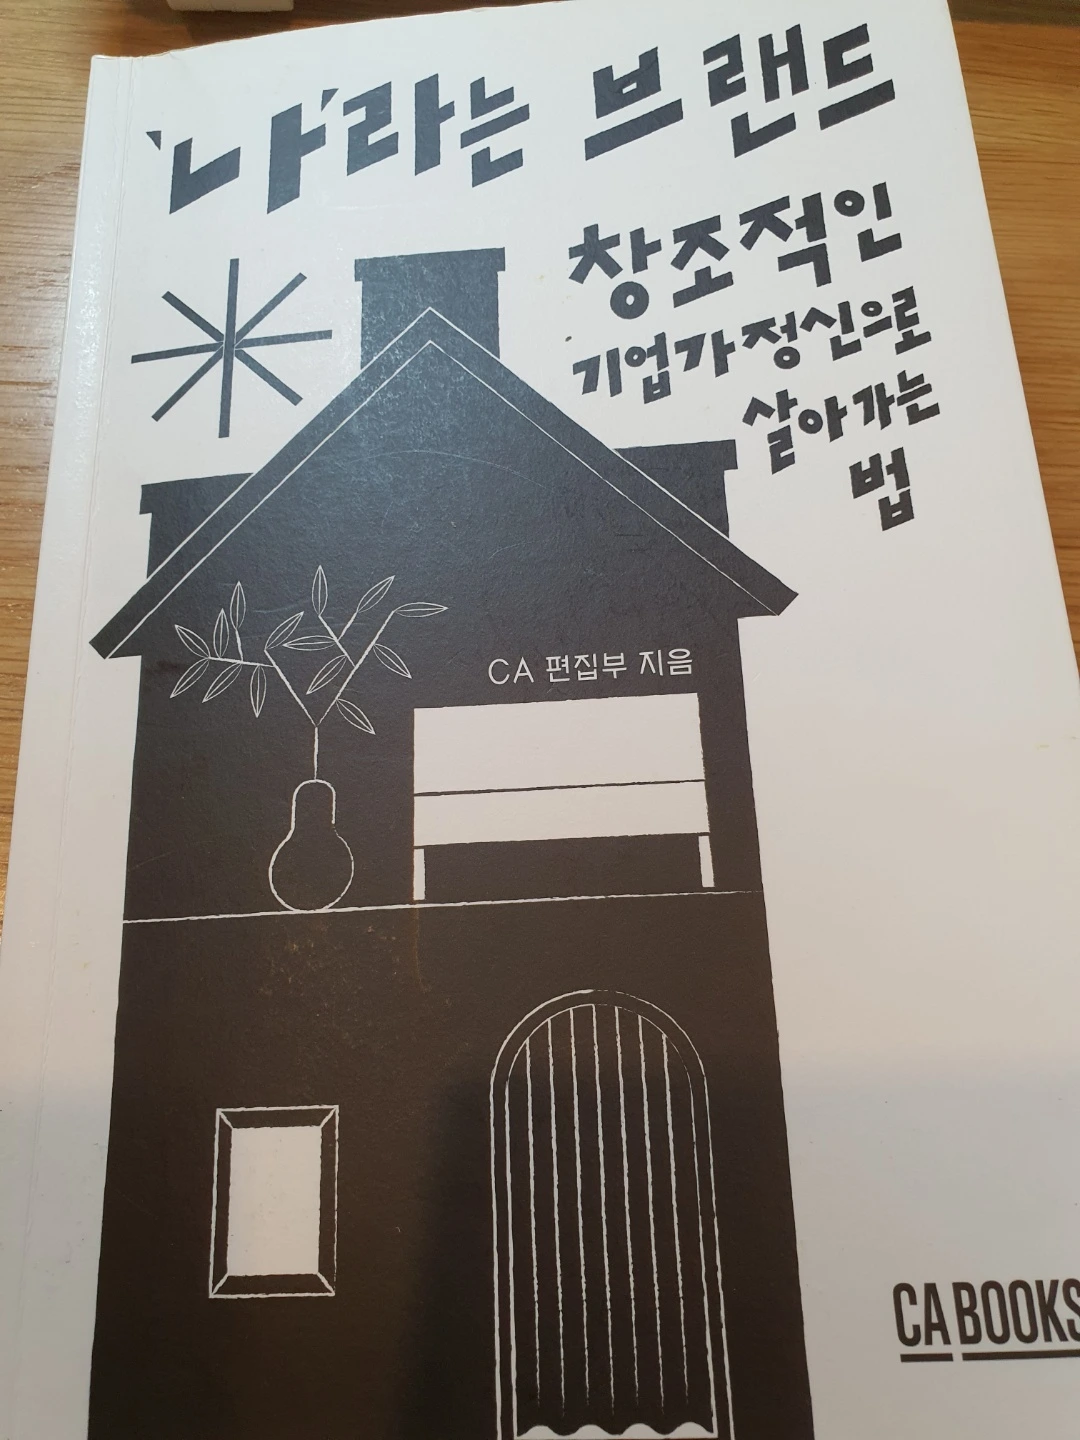 '나'라는 브랜드
창조적인
기업가정신으로
살아가는
법
CA 편집부 지음
CA BOOKS